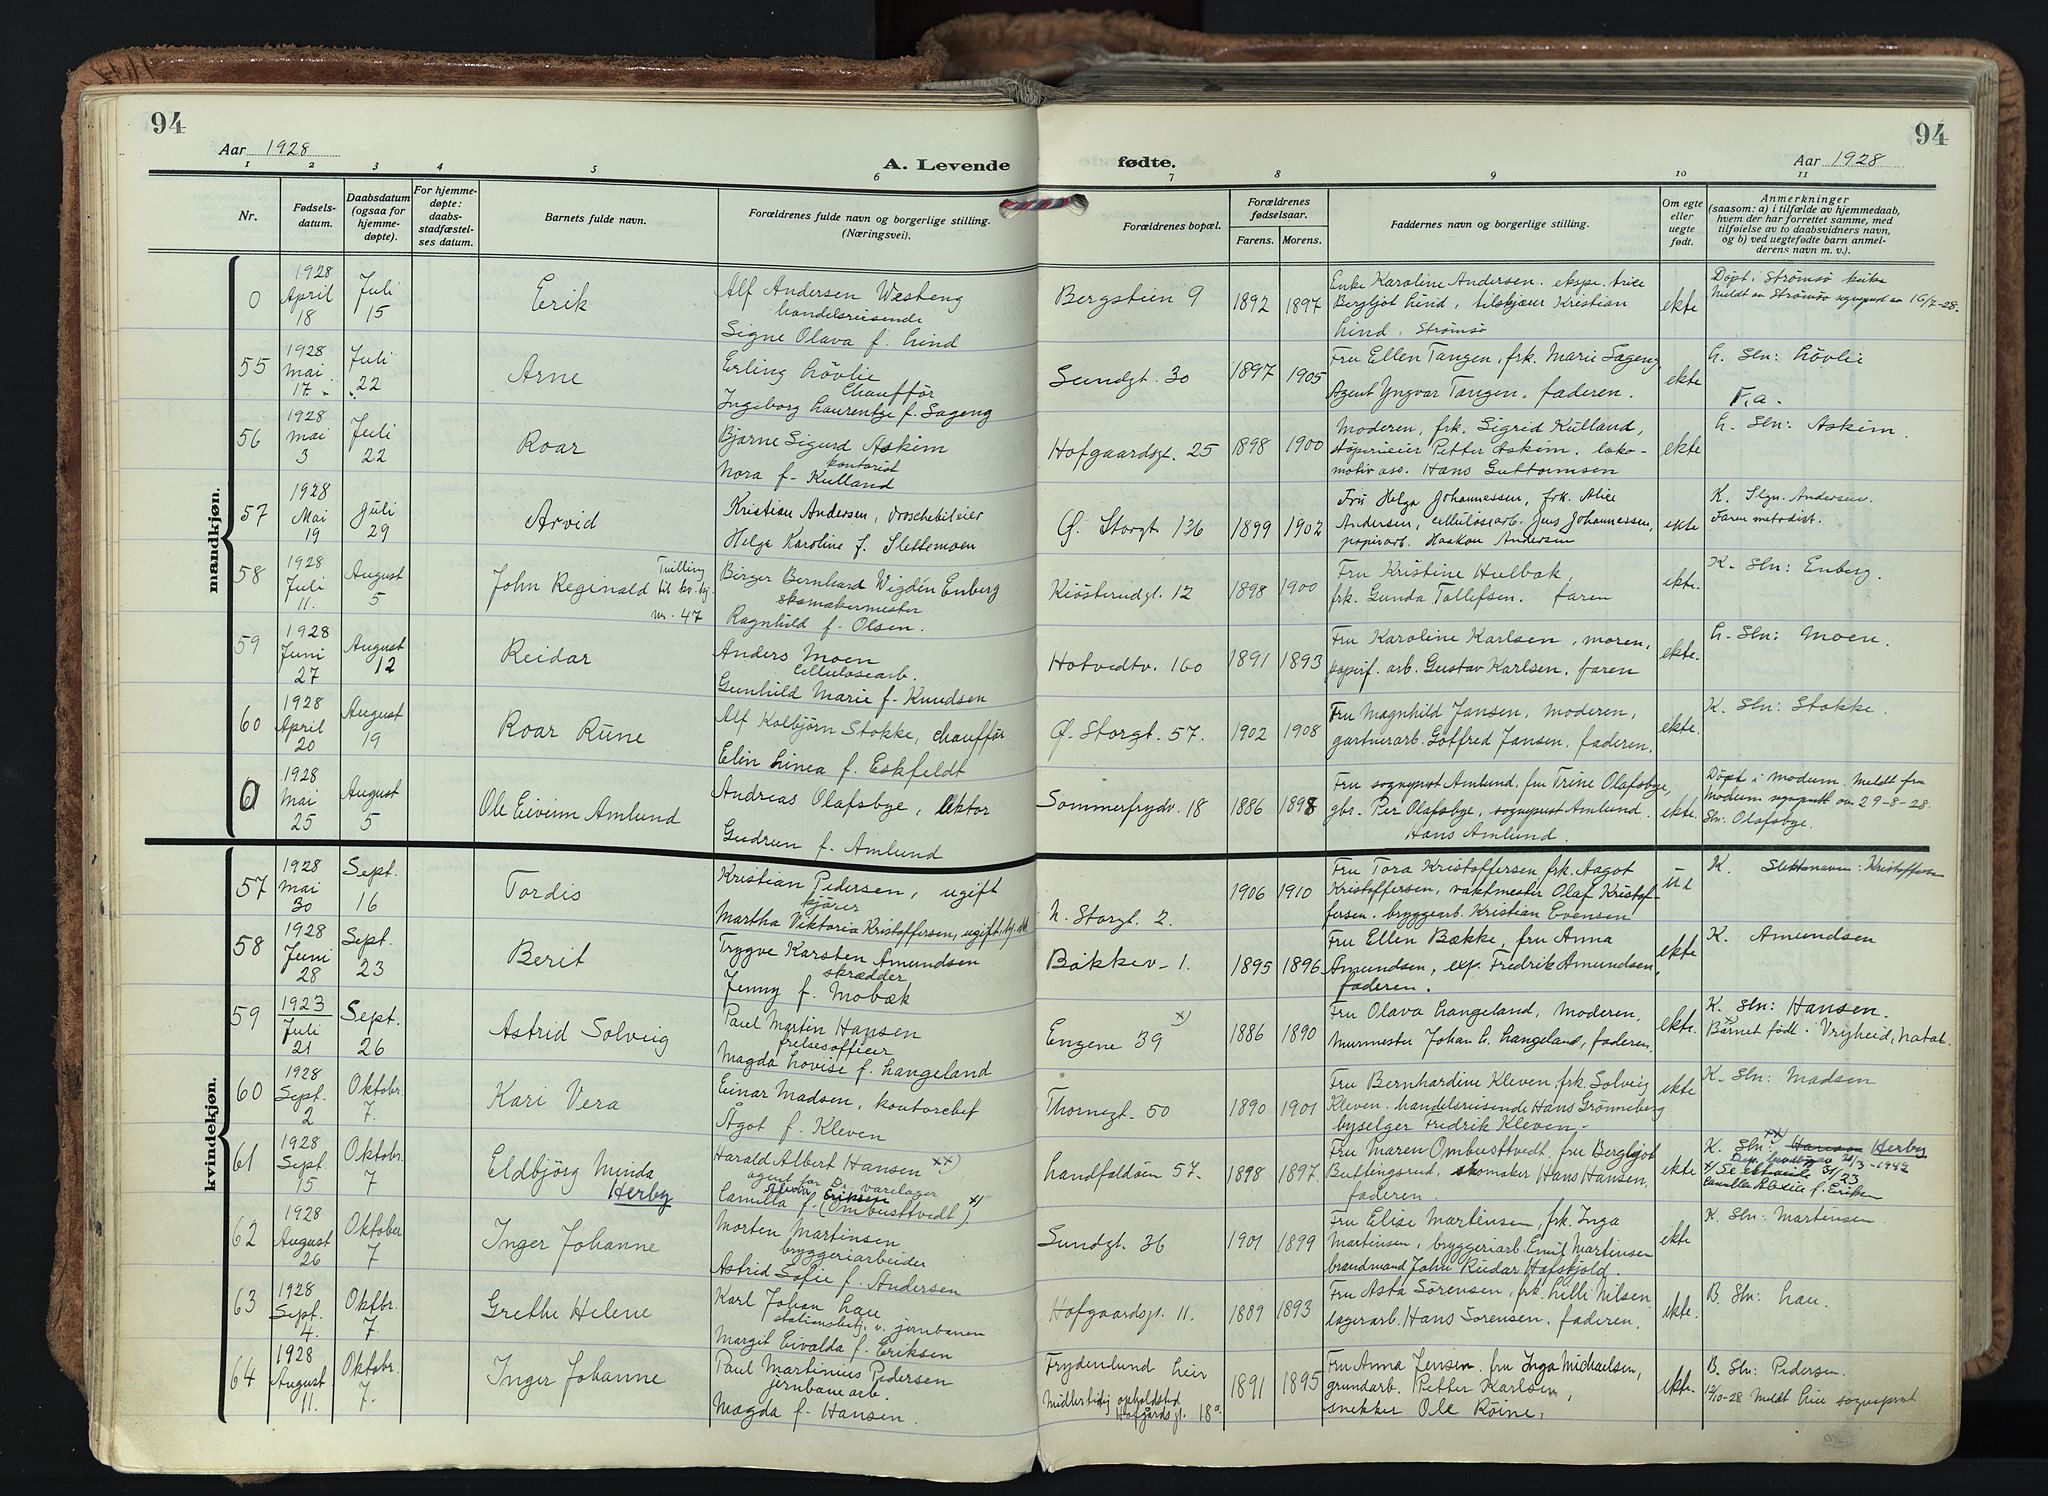 94
Aar 1928
A. Levende
fødte.
Aar 1928
94
1 2 3 4 5 6 7 8 9 10 11
Nr.
Fødselsdatum.
Daabsdatum (ogsaa for hjemmedøpte).
For hjemmedøpte: daabsstadfæstelses datum.
Barnets fulde navn.
Forældrenes fulde navn og borgerlige stilling. (Næringsvei).
Forældrenes bopæl.
Forældrenes fødselsaar.
Farens. Morens.
Faddernes navn og borgerlige stilling.
Om egte eller uegte født.
Anmerkninger (saasom: a) i tilfælde av hjemmedaab, hvem der har forrettet samme, med tilføielse av to daabsvidners navn, og b) ved uegtefødte barn anmelderens navn m. v.).
mandkjøn.
0 1928 April 18 Juli 15 Erik
Alf Andersen Westeng
handelsreisende
Signe Olava f. Lind
Bergstien 9 1892 1897
Enke Karoline Andersen. eksp.
Bergljot Lind, tilskjærer Kristian
Lind. Strømsø
ekte
Døpt i Strømsø kirke
Meldt av Strømsø sogneprest 16/7-28.
55 1928 Mai 17 Juli 22 Arne
Erling Løvlie
Chauffør
Ingeborg Laurentze f. Sageng
Sundgt. 30 1897 1905
Fru Ellen Tangen, frk. Marie Sageng,
Agent Yngvar Tangen. faderen.
ekte
L. Sln: Løvlie
F.a.
56 1928 Mai 3 Juli 22 Roar
Bjarne Sigurd Askim
kontorist
Nora f. Kulland
Hofgaardsgt. 25 1898 1900
Moderen, frk. Sigrid Kulland,
støperieier Petter Askim. loko-
motiv ass. Hans Guttormsen
ekte
L. Sln: Askim.
57 1928 Mai 19 Juli 29 Arvid
Kristian Andersen, droschebileier
Helga Karoline f. Slettemoen
Ø. Storgt 136 1899 1902
Fru Helga Johannessen, frk. Alice
Andersen, cellulosearb. Jens Johannessen,
papirarb. Haakon Andersen
ekte
K. Slgn. Andersen.
Faren metodist.
58 1928 Juli 11. August 5 John Reginald
Tvilling til kv. kj. nr. 47
Birger Bernhard Wigdén Enberg
skomakermester
Ragnhild f. Olsen.
Kiøsterudgt. 12 1898 1900
Fru Kristine Hulbak,
frk. Gunda Tollefsen. faren
ekte.
K. Sln: Enberg.
59 1928 Juni 27 August 12 Reidar
Anders Moen
Cellulosearb.
Gunhild Marie f. Knudsen
Hotvedtv. 160 1891 1893
Fru Karoline Karlsen, moren,
papirf. arb. Gustav Karlsen, faren
ekte.
L. Sln: Moen.
60 1928 April 20 August 19 Roar Rune
Alf Kolbjørn Stokke, chauffør
Elin Linea f. Eskfeldt
Ø. Storgt. 57. 1902 1908
Fru Magnhild Jansen, moderen,
gartnerarb. Gotfred Jansen, faderen.
ekte.
K. Sln: Stokke.
0 1928 Mai 25 August 5 Ole Eivinn Amlund
Andreas Olafsbye, lektor
Gudrun f. Amlund
Sommerfrydv. 18 1886 1898
Fru sogneprst Amlund, fru Trine Olafsbye,
gbr. Per Olafsbye, sogneprest Amlund.
Hans Amlund.
ekte.
Døpt i Modum. Meldt fra
Modum sogneprest 29-8-28.
Sln: Olafsbye.
kvindekjøn.
57 1928 Mai 30 Sept. 16 Tordis
Kristian Pedersen, ugift
kjører
Martha Viktoria Kristoffersen, ugift,
N. Storgt. 2. 1906 1910
Fru Tora Kristoffersen, frk. Aagot
Kristoffersen, vaktmester Olaf Kristof-
fersen. bryggearb. Kristian Evensen
K. Slektsnavn: Kristoffersen
58 1928 Juni 28 Sept. 23 Berit
Trygve Karsten Amundsen
skrædder
Jenny f. Mobæk
Bækkev. 1. 1895 1896
Fru Ellen Bække, fru Anna
Amundsen, exp. Fredrik Amundsen,
faderen.
ekte
K. Amundsen
59 1923 Juli 21 Sept. 26 Astrid Solveig
Paul Martin Hansen
frelsesofficer
Magda Lovise f. Langeland
Engene 39 x) 1886 1890
Fru Olava Langeland, Moderen,
murmester Johan L. Langeland, faderen.
ekte.
K. Sln: Hansen.
x) Barnet født i Vryheid, Natal.
60 1928 Sept. 2 Oktobr. 7. Kari Vera
Einar Madsen, kontorchef
Ågot f. Kleven
Thornegt. 50 1890 1901
Fru Bernhardine Kleven, frk. Solveig
Kleven. handelsreisende Hans Grønneberg
byselger Fredrik Kleven.
ekte
K. Sln: Madsen
61 1928 Sept. 15 Oktobr. 7 Eldbjørg Munda
Herby
Harald Albert Hansen xx)
agent for Dr. varelager
Camilla f. Eriksen (Ombusttvedt). x)
Landfaldøen 57. 1898 1897
Fru Maren Ombusttvedt. fru Bergljot
Buttingsrud, skomaker Hans Hansen,
faderen.
ekte
K. Sln: xx) Hansen Herby
20/3-1942
Camilla f. Eriksen
62 1928 August 26 Oktober 7 Inger Johanne
Morten Martinsen
bryggeriarbeider
Astrid Sofie f. Andersen
Sundgt. 36 1901 1899
Fru Elise Martinsen, frk. Inga
Martinsen, bryggeriarb. Emil Martinsen
brandmand John Reidar Hafskjold.
ekte
K. Sln: Martinsen
63 1928 Sept. 4. Oktbr. 7. Grethe Helene
Karl Johan Lau
stationsbetj. v. jernbanen
Margit Eivalda f. Eriksen
Hofgaardsgt. 11. 1889 1893
Fru Asta Sørensen, frk. Lilli Nilsen
lagerarb. Hans Sørensen. faderen.
ekte.
B. Sln: Lau.
64 1928 August 11. Oktobr. 7. Inger Johanne
Paul Martinius Pedersen
jernbanearb.
Magda f. Hansen.
Frydenlund Lier
Midlertidig opholdssted
Hofgårdsgt. 18a
1891 1895
Fru Anna Jensen. fru Inga Michaelsen,
grundarb. Petter Karlsen,
snekker Ole Røine,
ekte.
B. Sln: Pedersen.
12/10-28 Meldt Lier sogneprest